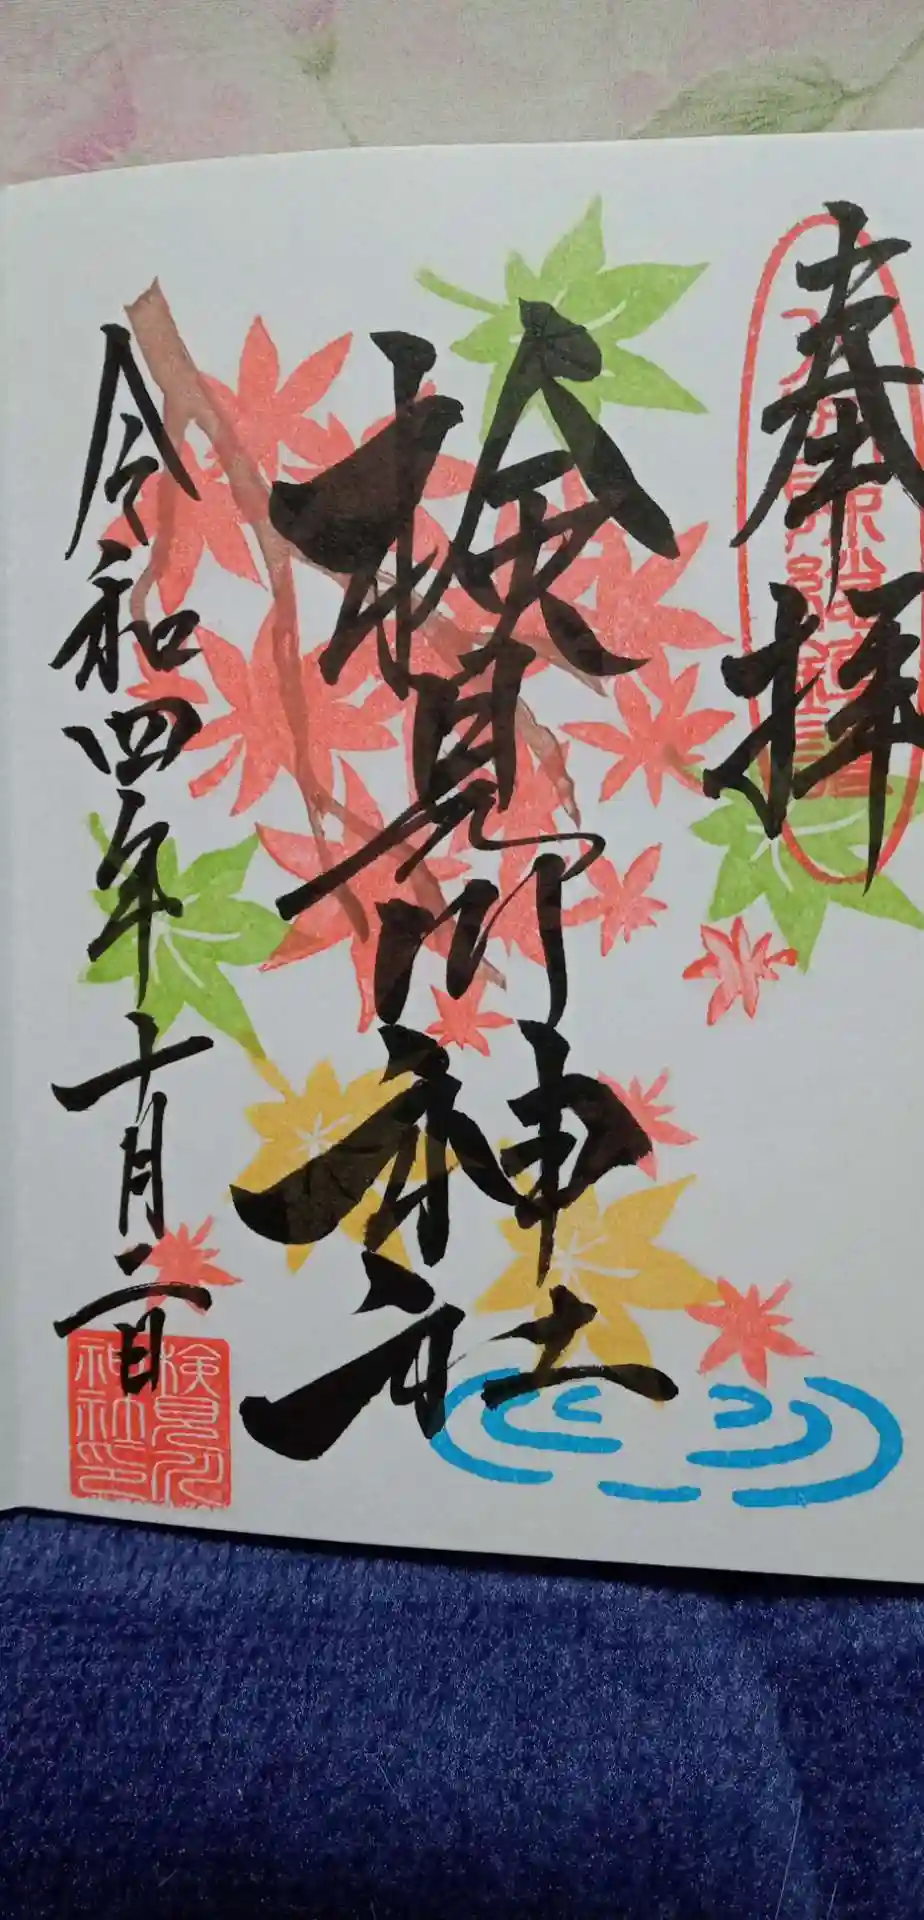 奉拝
検見川神社
令和四年十月二日
検見川
神社印